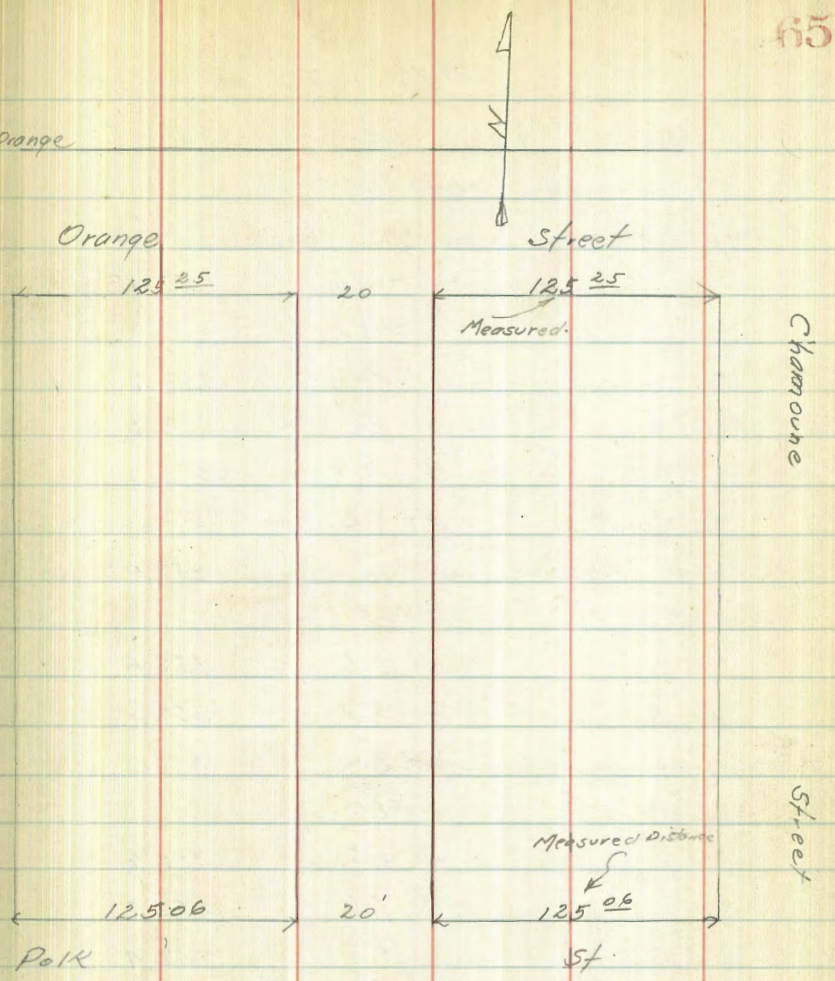 65
Orange
Orange Street
125 25 20 125 25
Measured.
Chamoune Street
Measured Distance
125.06 20' 125 06
Polk St.